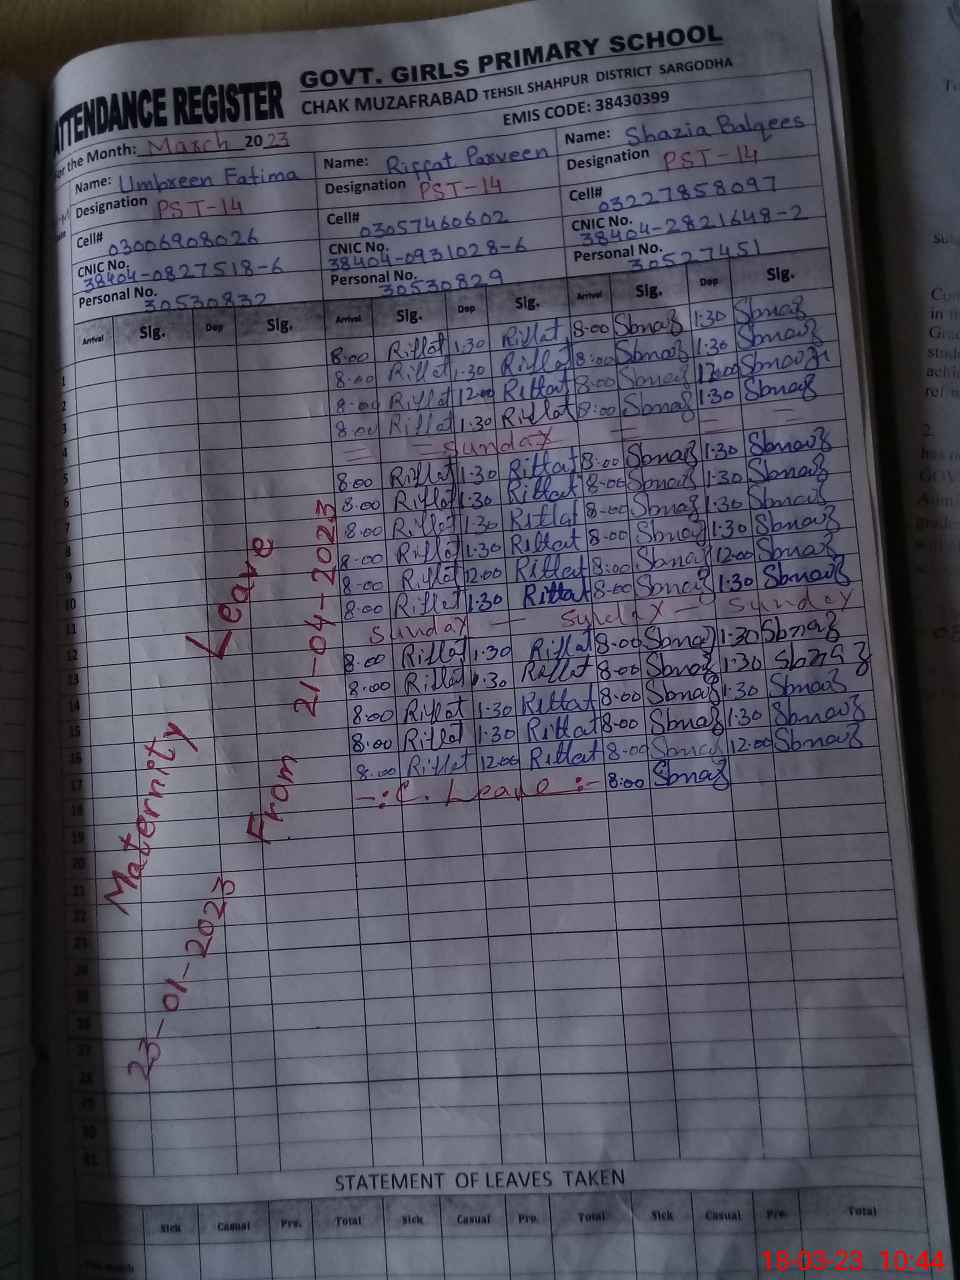 ATTENDANCE REGISTER
GOVT. GIRLS PRIMARY SCHOOL
CHAK MUZAFRABAD TEHSIL SHAHPUR DISTRICT SARGODHA
EMIS CODE: 38430399
For the Month: March 2023
Name: Umbreen Fatima Name: Riffat Parveen Name: Shazia Balqees
Designation PST-14 Designation PST-14 Designation PST-14
Cell# 03006908026 Cell# 03057460602 Cell# 03227858097
CNIC No. 38404-0827518-6 CNIC No. 38404-0931028-6 CNIC No. 38404-2821648-2
Personal No. 30530832 Personal No. 30530829 Personal No. 30527451
Arrival Sig. Dep Sig. Arrival Sig. Dep Sig. Arrival Sig. Dep Sig.
1 8:00 Riffat 1:30 Riffat 8:00 Sbnaz 1:30 Sbnaz
2 8:00 Riffat 1:30 Riffat 8:00 Sbnaz 1:30 Sbnaz
3 8:00 Riffat 12:00 Riffat 8:00 Sbnaz 12:00 Sbnaz
4 8:00 Riffat 1:30 Riffat 8:00 Sbnaz 1:30 Sbnaz
5 = = Sunday = = = =
6 8:00 Riffat 1:30 Riffat 8:00 Sbnaz 1:30 Sbnaz
7 8:00 Riffat 1:30 Riffat 8:00 Sbnaz 1:30 Sbnaz
8 8:00 Riffat 1:30 Riffat 8:00 Sbnaz 1:30 Sbnaz
9 8:00 Riffat 1:30 Riffat 8:00 Sbnaz 1:30 Sbnaz
10 8:00 Riffat 12:00 Riffat 8:00 Sbnaz 12:00 Sbnaz
11 8:00 Riffat 1:30 Riffat 8:00 Sbnaz 1:30 Sbnaz
12 Sunday — Sunday — Sunday
13 8:00 Riffat 1:30 Riffat 8:00 Sbnaz 1:30 Sbnaz
14 8:00 Riffat 1:30 Riffat 8:00 Sbnaz 1:30 Sbnaz
15 8:00 Riffat 1:30 Riffat 8:00 Sbnaz 1:30 Sbnaz
16 8:00 Riffat 1:30 Riffat 8:00 Sbnaz 1:30 Sbnaz
17 8:00 Riffat 12:00 Riffat 8:00 Sbnaz 12:00 Sbnaz
18 -:C. Leave:- 8:00 Sbnaz
19
20
21
22
23
24
25
26
27
28
29
30
31
Maternity Leave
23-01-2023 From 21-04-2023
STATEMENT OF LEAVES TAKEN
Sick Casual Prv. Total Sick Casual Prv. Total Sick Casual Prv. Total
18-03-23 10:44